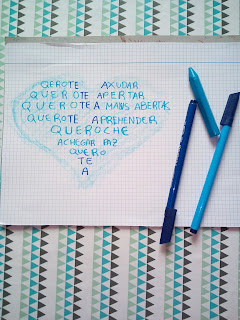 QEROTE AXUDAR
QUEROTE APERTAR
QUEROTE A MANS ABERTAS
QUEROTE APREHENDER
QUEROCHE
ACHEGAR PAZ
QUERO
TE
A